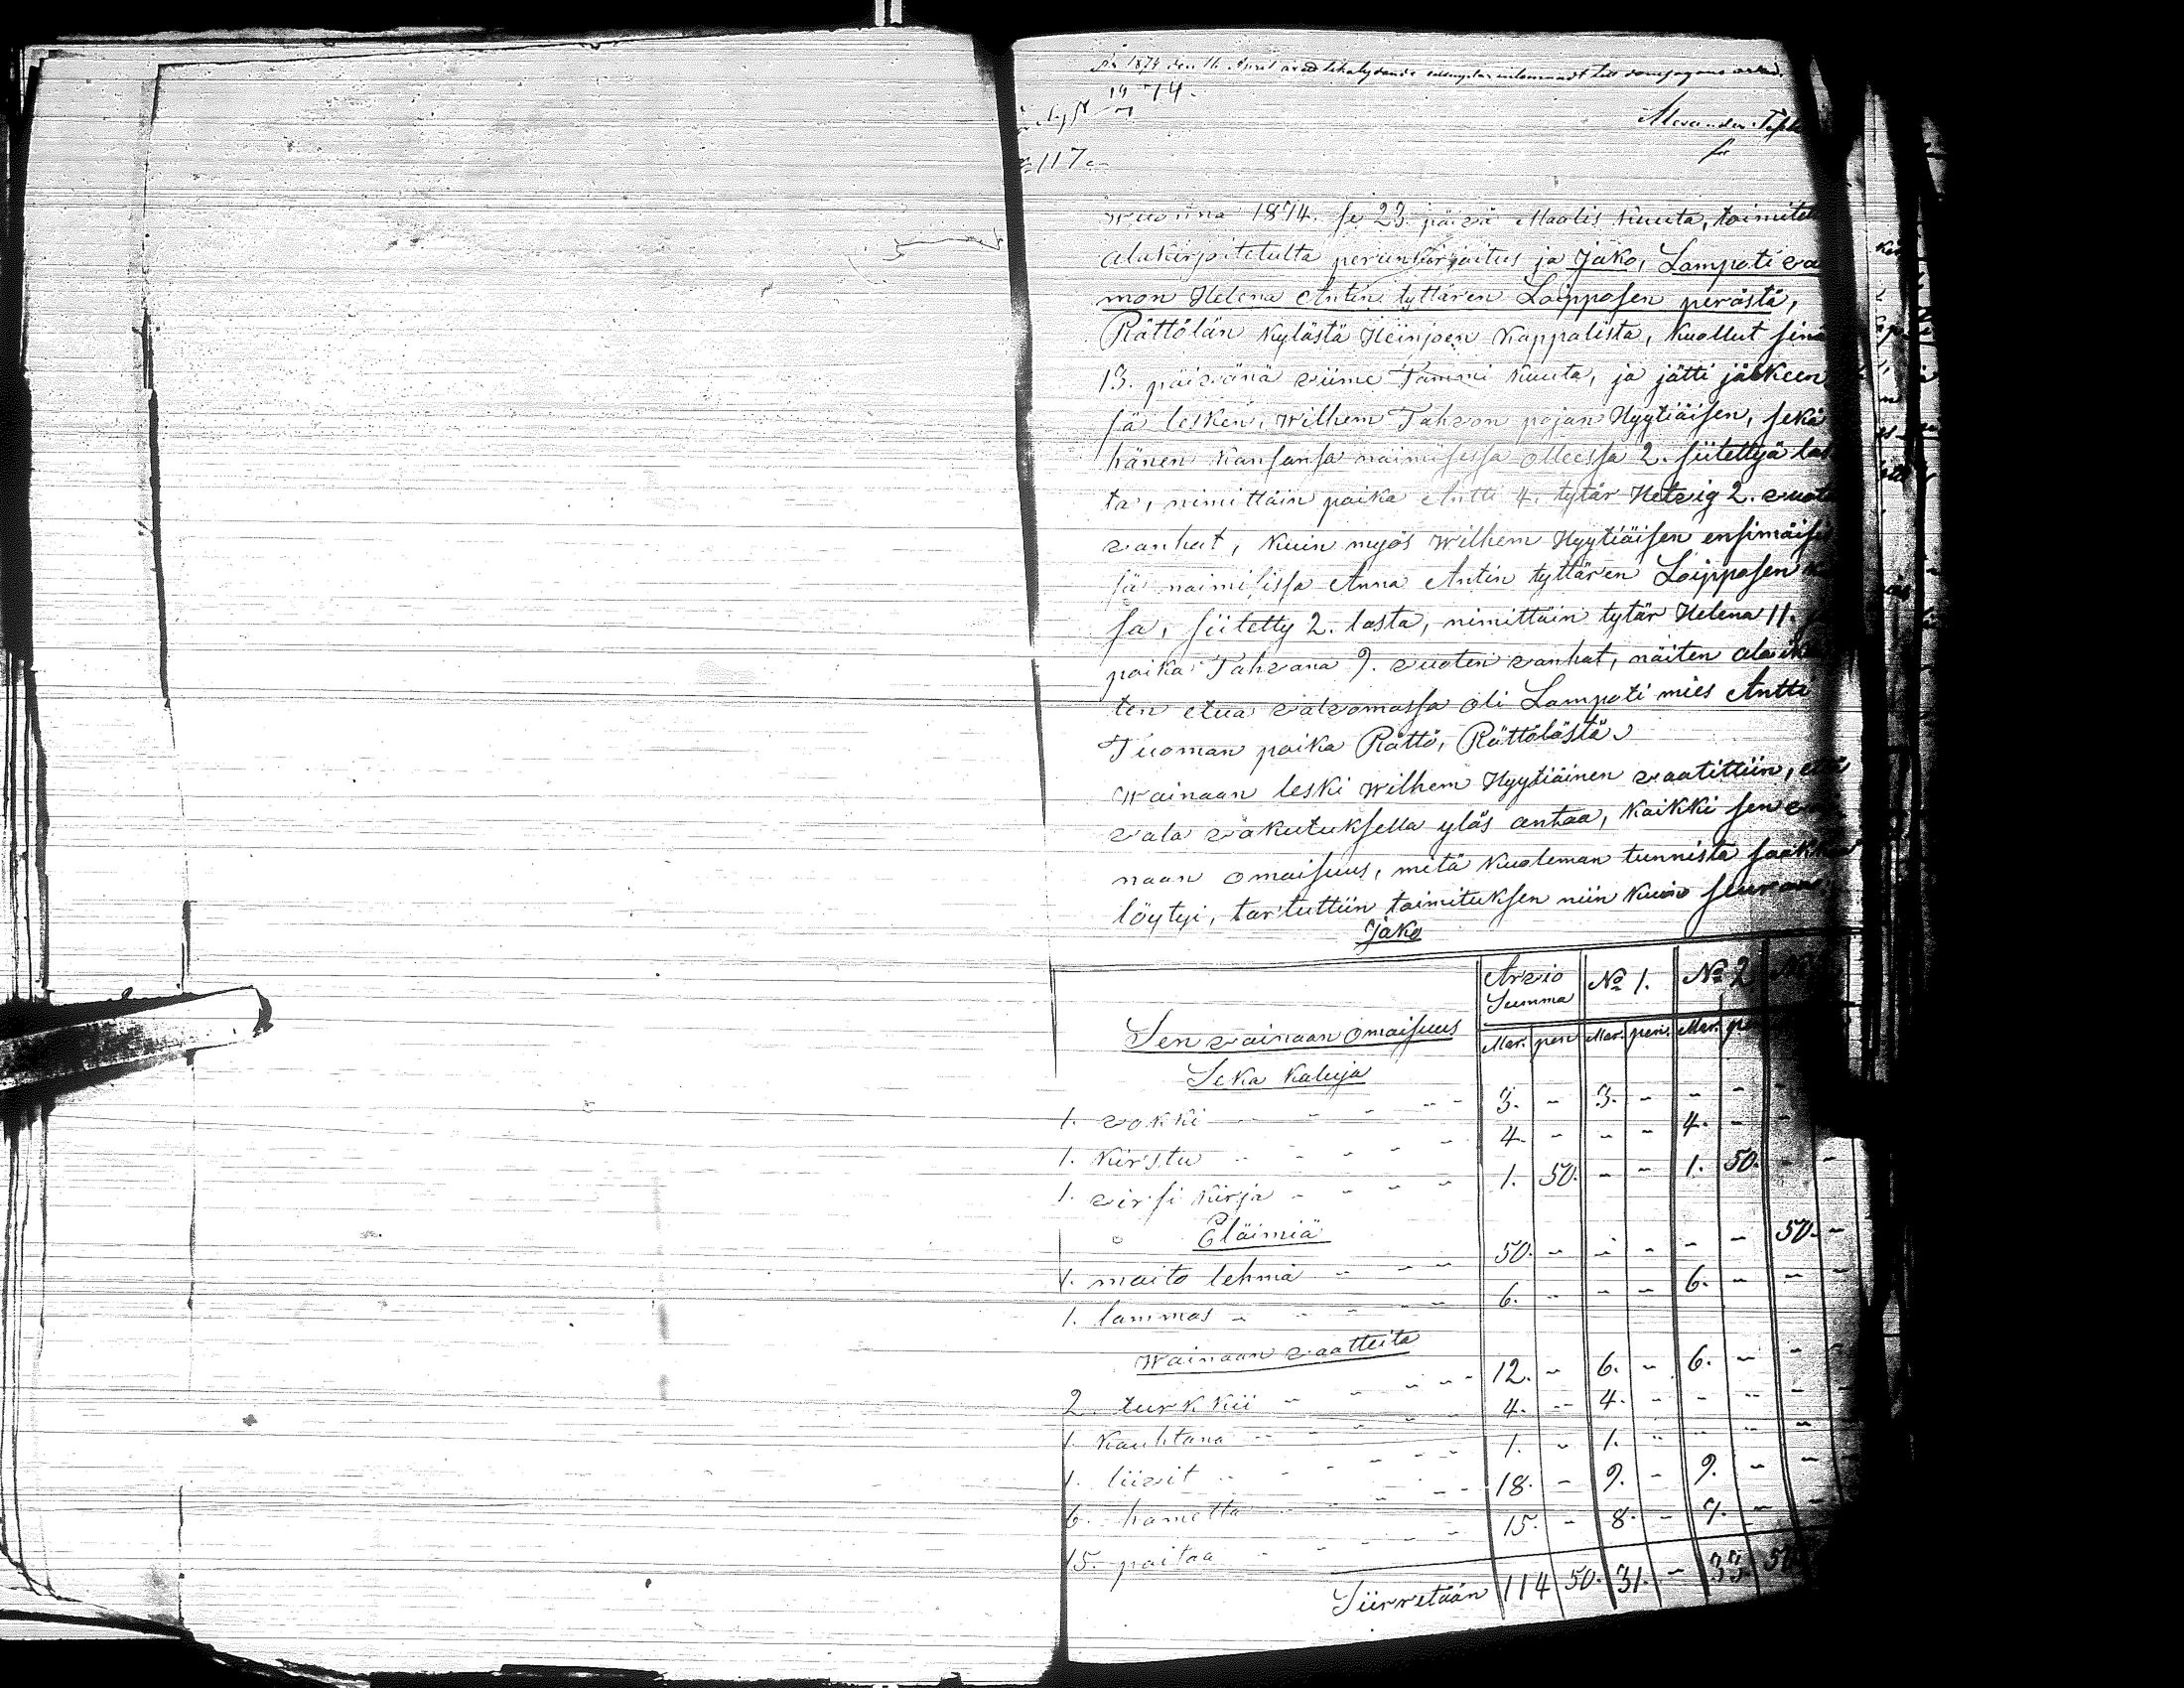 År 1874 den 16 April likalydande
19/7 74.
117
Wuonna 1874. se 23. päivä Maalis kuuta, toimitet
alakirjoitetulta perunkirjoitus ja Jako, Lampoti va
mon Helena Antin tyttären Loipposen perästä,
Rättölän kylästä Heinjoen Kappalista, kuollut sinä
13. päivänä viime Tammi kuuta, ja jätti jälkeen
sä lesken, Wilhem Tahvon pojan Hyytiäisen, sekä
hänen kansansa naimisessa olleessa 2. siitettyä las
ta, nimittäin poika Antti 4. tytär Hetvig 2. vuota
vanhat, kuin myös Wilhem Hyytiäisen ensimäises
sä naimisissa Anna Antin tyttären Loipposen
sa, siitetty 2. lasta, nimittäin tytär Helena 11.
poika Tahvana 9. vuoten vanhat, näiten ala
ten etua valvomassa oli Lampoti mies Antti
Tuoman poika Rättö, Rättölästä
Wainaan leski Wilhem Hyytiäinen vaatittiin, että
vala vakutuksella ylös antaa, kaikki sen vai
naan omaisuus, mitä kuoleman tunnista saakka
löytyi, tartuttiin toimituksen niin kuin seuraa
Jako
Arvio Summa No 1. No 2
Sen vainaan omaisuus Mar. pen Mar. pen. Mar. pe
Seka kaluja
1. vokki - - - - - 3. - 3. - - - -
1. kirstu - - - - - 4. - - - 4. - -
1. virsi kirja - - - - 1. 50. - - 1. 50. - -
Eläimiä
1. maito lehmä - - - 50. - - - - - 50. -
1. lammas - - - - - 6. - - - 6. - - -
Wainaan vaatteita
2. turkkii - - - - - 12. - 6. - 6. - - -
1. Kauhtana - - - - - 4. - 4. - - - - -
1. liivit - - - - - - 1. - 1. - - - -
6. hametta - - - - - 18. - 9. - 9. - -
15. paitaa - - - - - 15. - 8. - 7. - -
Siirretään 114 50. 31. - 33. 50